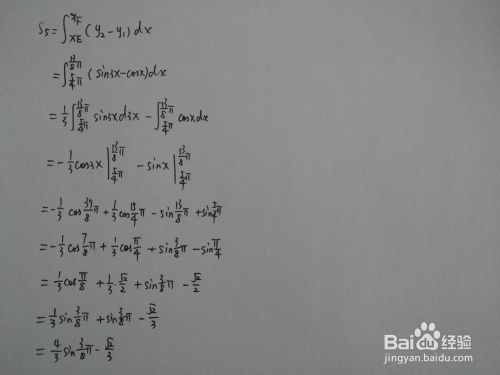 S₅=∫_{x_E}^{x_F}(y₂-y₁)dx
=∫_{5/4π}^{13/8π}(sin3x-cosx)dx
=1/3∫_{5/4π}^{13/8π}sin3xd3x-∫_{5/4π}^{13/8π}cosxdx
=-1/3cos3x|_{5/4π}^{13/8π}-sinx|_{5/4π}^{13/8π}
=-1/3cos39/8π+1/3cos15/4π-sin13/8π+sin5/4π
=-1/3cos7/8π+1/3cosπ/4+sin3/8π-sinπ/4
=1/3cosπ/8+1/3·√2/2+sin3/8π-√2/2
=1/3sin3/8π+sin3/8π-√2/3
=4/3sin3/8π-√2/3
Baidu经验
jingyan.baidu.com